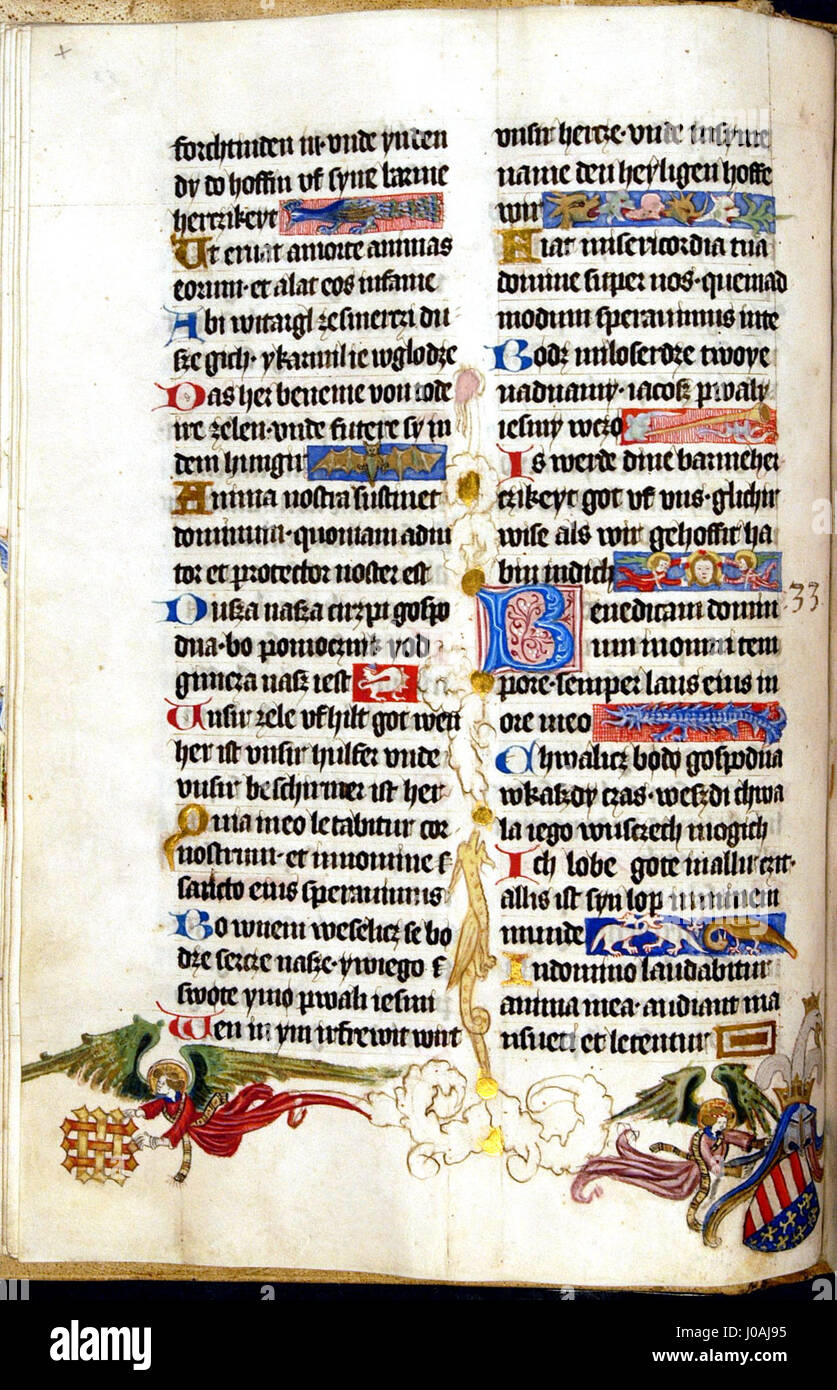 forchtinden in· vnde yn den
dy do hoffin vf syne barme
herczikeyt
Ut eruat amorte animas
eorum· et alat eos infame
Abi witargl ze smerczi du
sze gich· ykarmil ie wglodze
Das her beneme von tode
ire zelen· vnde futere sy in
dem hungir
Anima nostra sustinet
dominum· quoniam adiu
tor et protector noster est
Dusza nasza cirzpi gospo
dna· bo pomocznik y od
gimcza nasz iest
Unsir zele vf hilt got wen
her ist vnsir hulfer vnde
vnsir beschirmer ist her
Quia in eo letabitur cor
nostrum· et in nomine
sancto eius sperauimus
Bo wnem weselicz se bo
dze sercze nasze· ywiego
swote ymo pwali iesmi
Wen in ym irfrewit wirt
vnsir hercze· vnde in syme
name den heyligen hoffe
wir
Fiat misericordia tua
domine super nos· quemad
modum sperauimus inte
Bodz miloserdze twoye
nadnamy· iacosz pwaly
iesmy wezo
Is werde dine barmeher
czikeyt got vf vns· glichir
wise als wir gehoffit ha
bin indich
33
Benedicam domin
um in omni tem
pore· semper laus eius in
ore meo
Chwalicz bodo gospdna
wkaszdy czas· weszdi chwa
la iego wusczech mogich
Ich lobe gote in allir czit·
allis ist syn lop in minem
munde
In domino laudabitur
anima mea· audiant ma
nsueti et letentur
alamy
alamy
Image ID: J0AJ95
www.alamy.com